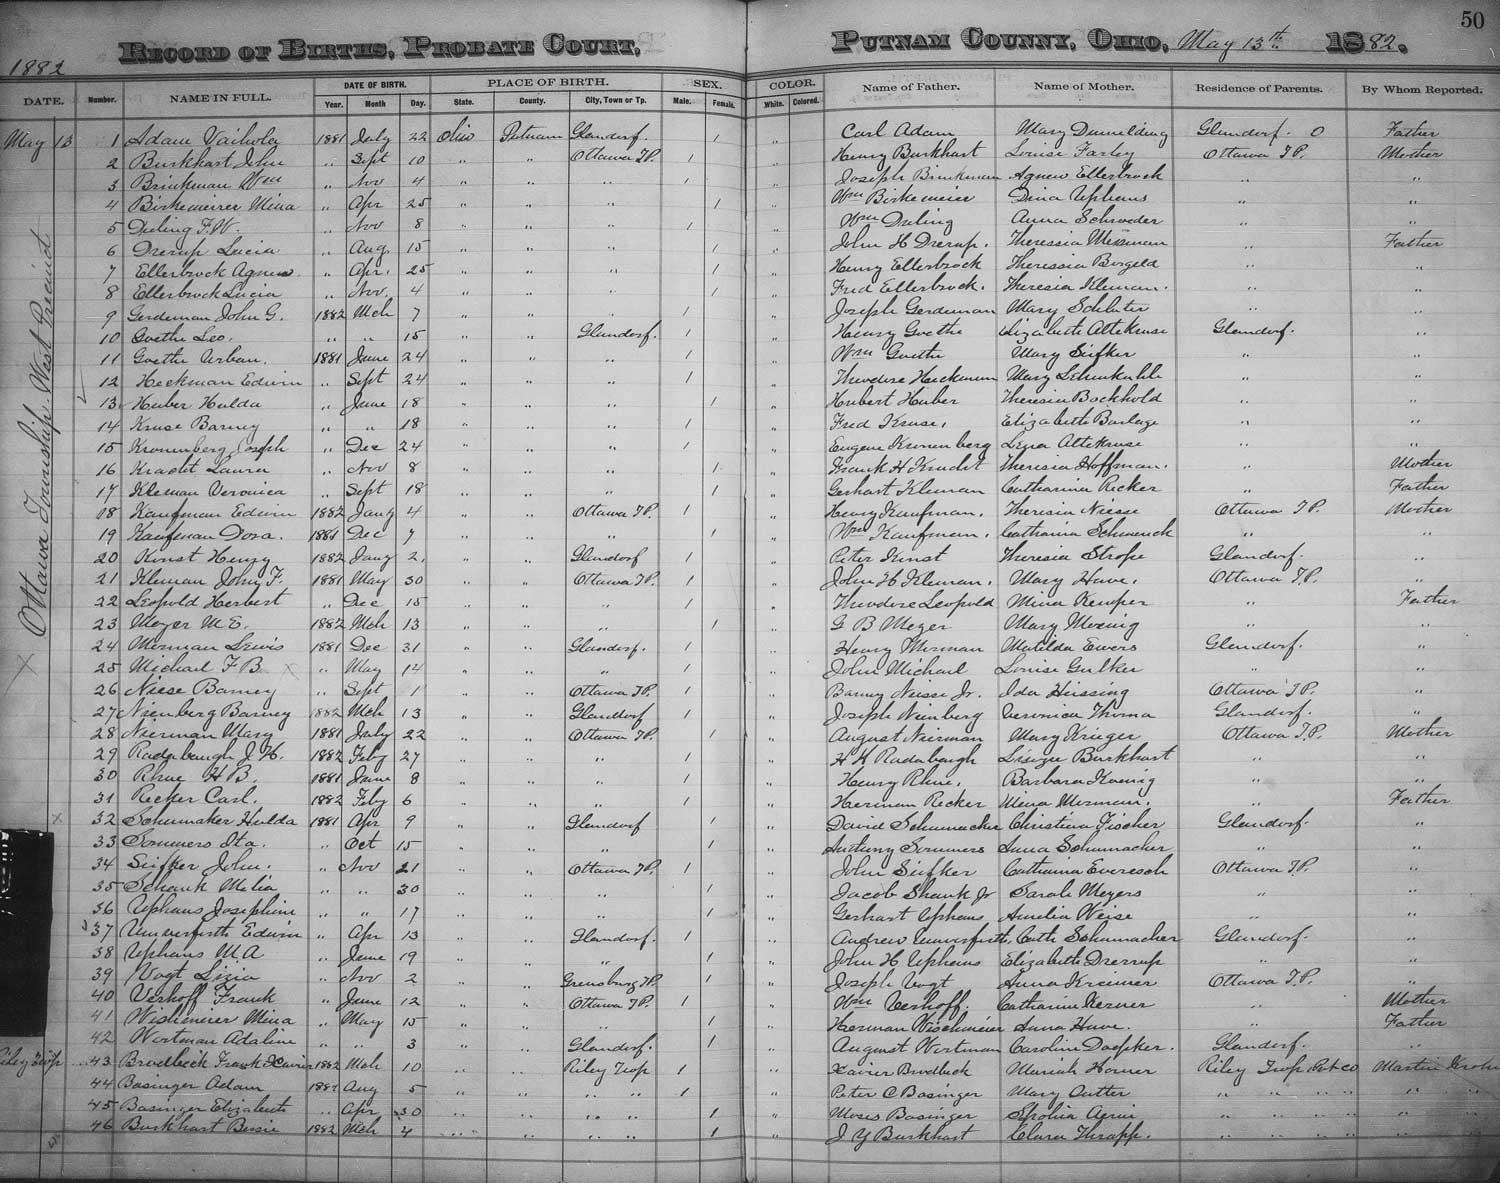 50
RECORD OF BIRTHS, PROBATE COURT, PUTNAM COUNNY, OHIO, May 13th 1882.
1882
DATE. Number. NAME IN FULL. DATE OF BIRTH. PLACE OF BIRTH. SEX. COLOR. Name of Father. Name of Mother. Residence of Parents. By Whom Reported.
Year. Month Day. State. County. City, Town or Tp. Male. Female. White. Colored.
Ottawa Township West Precinct
May 13 1 Adam 1881 July 22 Ohio Putnam Glandorf. 1 " Carl Adam Mary Glandorf. O Father
2 Burkhart John " Sept 10 " " Ottawa TP. 1 " Henry Burkhart Louise Farley Ottawa TP. Mother
3 Brinkman Wm " Nov 4 " " " 1 " Joseph Brinkman Agnes Ellerbrock " "
4 Birkemeier Mina " Apr 25 " " " 1 " Wm Birkemeier Dina Uphaus " "
5 Dieling F. W. " Nov 8 " " " 1 " Wm Dieling Anna Schroeder " "
6 Drerup Lucia " Aug 15 " " " 1 " John H Drerup. Theressia " Father
7 Ellerbrock Agnes " Apr. 25 " " " 1 " Henry Ellerbrock Theressia Borgeld " "
8 Ellerbrock Lucia " Nov. 4 " " " 1 " Fred Ellerbrock. Theresia Kleman. " "
9 Gerdeman John G. 1882 Mch 7 " " " 1 " Joseph Gerdeman Mary " "
10 Goethe Leo. " " 15 " " Glandorf. 1 " Henry Goethe Elizabeth Attekruse Glandorf. "
11 Goethe Urban. 1881 June 24 " " " 1 " Wm Goethe Mary Siefker " "
12 Heckman Edwin " Sept 24 " " " 1 " Theodore Heckman Mary " "
13 Huber Hulda " June 18 " " " 1 " Hubert Huber Theresia Bockhold " "
14 Kruse Barney " " 18 " " " 1 " Fred Kruse. Elizabeth " "
15 Kronenberg Joseph " Dec 24 " " " 1 " Eugene Kronenberg Attekruse " "
16 Kracht Laura " Nov 8 " " " 1 " Frank H Theresia Hoffman. " Mother
17 Kleman Veronica " Sept 18 " " " 1 " Gerhart Kleman Catharina Recker " Father
18 Kaufman Edwin 1882 Jany 4 " " Ottawa TP. 1 " Henry Kaufman. Theresia Niese Ottawa TP. Mother
19 Kaufman Dora. 1881 Dec 7 " " " 1 " Wm Kaufman. Catharina " "
20 Kunst Henry 1882 Jany 2 " " Glandorf 1 " Peter Kunst Theresia Strope Glandorf. "
21 Kleman John F. 1881 May 30 " " Ottawa TP. 1 " John H Kleman. Mary Ottawa TP. "
22 Leopold Herbert " Dec 15 " " " 1 " Theodore Leopold Mina Kemper " Father
23 Meyer M E. 1882 Mch 13 " " " 1 " G B Meyer Mary " "
24 Merman Lewis 1881 Dec 31 " " Glandorf. 1 " Henry Merman Matilda Ewers Glandorf. "
25 Michael F B. " May 14 " " " 1 " John Michael Louise " "
26 Niese Barney " Sept 1 " " Ottawa TP. 1 " Barney Neisse Jr. Ida Ottawa TP. "
27 Nienberg Barney 1882 Mch 13 " " Glandorf 1 " Joseph Nienberg Veronica Thoma Glandorf. "
28 Nierman Mary 1881 July 22 " " Ottawa TP. 1 " August Nierman Mary Krieger Ottawa T.P. Mother
29 Radabaugh J. H. 1882 Feby 27 " " " 1 " Radabaugh Burkhart " "
30 Rhue H B. 1881 June 8 " " " 1 " Henry Rhue. Barbara Koenig " "
31 Recker Carl. 1882 Feby 6 " " " 1 " Herman Recker Mina Merman. " Father
32 Schumaker Hulda 1881 Apr 9 " " Glandorf 1 " David Schumacher Christina Fischer Glandorf. "
33 Sommers Ita. " Oct 15 " " " 1 " Anthony Sommers Anna Schumacher " "
34 Siefker John. " Nov 21 " " Ottawa TP. 1 " John Siefker Catharina Ottawa TP. "
35 Schank " " 30 " " " 1 " Jacob Shank Jr Sarah Meyers " "
36 Uphaus Josephine " " 17 " " " 1 " Gerhart Uphaus Amelia Weise " "
37 Unverferth Edwin " Apr 13 " " Glandorf. 1 " Andrew Unverferth. Cath Schumacher Glandorf. "
38 Uphaus M A " June 19 " " " 1 " John H Uphaus Elizabeth Drerrup " "
39 Vogt Lizia " Nov 2 " " Greensburg TP. 1 " Joseph Vogt Anna Ottawa T.P. "
40 Verhoff Frank " June 12 " " Ottawa TP. 1 " Wm Verhoff. Catharina Kerner " Mother
41 Mina " May 15 " " " 1 " Herman Wischmeier Anna " Father
42 Wortman Adaline " " 3 " " Glandorf. 1 " August Wortman Caroline Glandorf. "
Riley Twp 43 Brodbeck Frank Xavier 1882 Mch 10 " " Riley Twp 1 " Xavier Brodbeck Mariah Horner Riley Twp Put CO Martin
44 Basinger Adam 1881 Aug 5 " " " " 1 " Peter C Basinger Mary " " " " " "
45 Basinger Elizabeth " Apr 30 " " " " 1 " Moses Basinger " " " " " "
46 Burkhart 1882 Mch 4 " " " " 1 " J Y Burkhart Clara Thrapp. " " " " " "